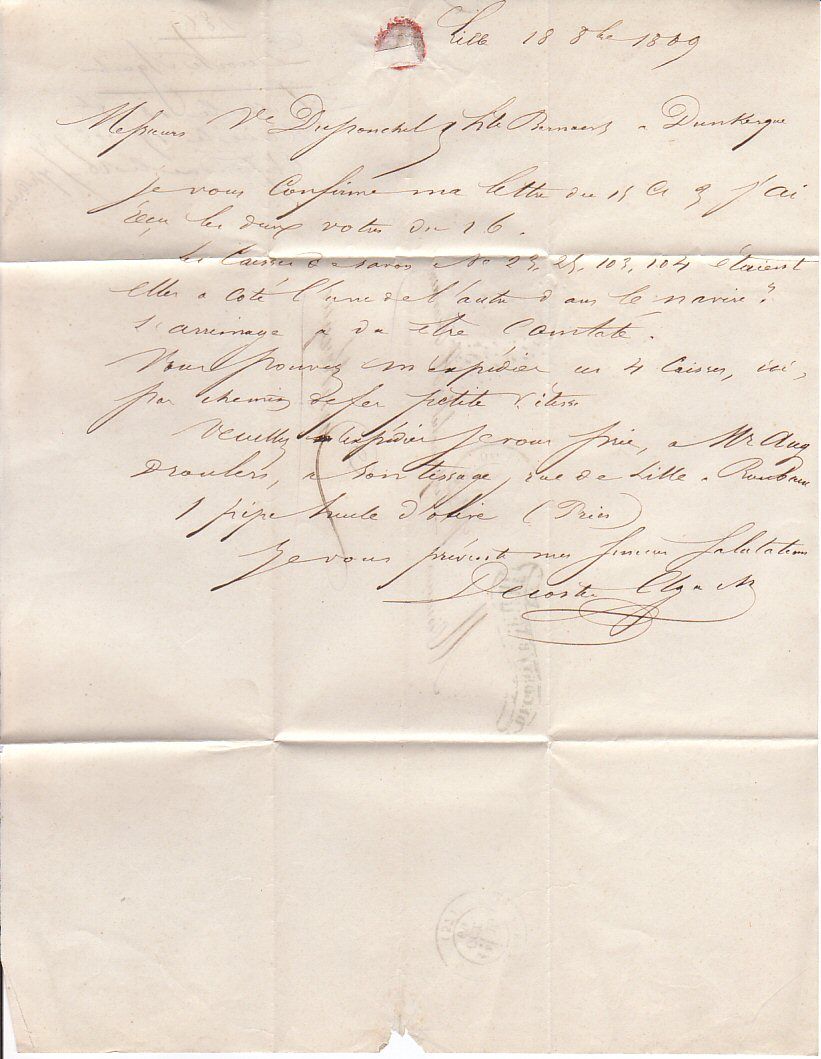 Lille 18 8bre 18
Messieurs Ve Duponchel & Bernaert a Dunkerque
Je vous Confirme ma lettre du 15 Ct & j'ai
reçu les deux votres du 16.
les Caisses de savon No 23, 25, 103, 104 étaient
elles a coté l'une de l'autre dans le navire?
l'arrimage a du etre Constaté.
Vous pouvez m'expédier ces 4 Caisses, ici,
par chemin de fer petite Vitesse
Veuillez expédier je vous prie, a Mr Aug
Droulers, a son tissage, rue de Lille a Roubaix
1 pipe huile d'olive (Pries)
Je vous présente mes sinceres Salutations
Decoster Agache